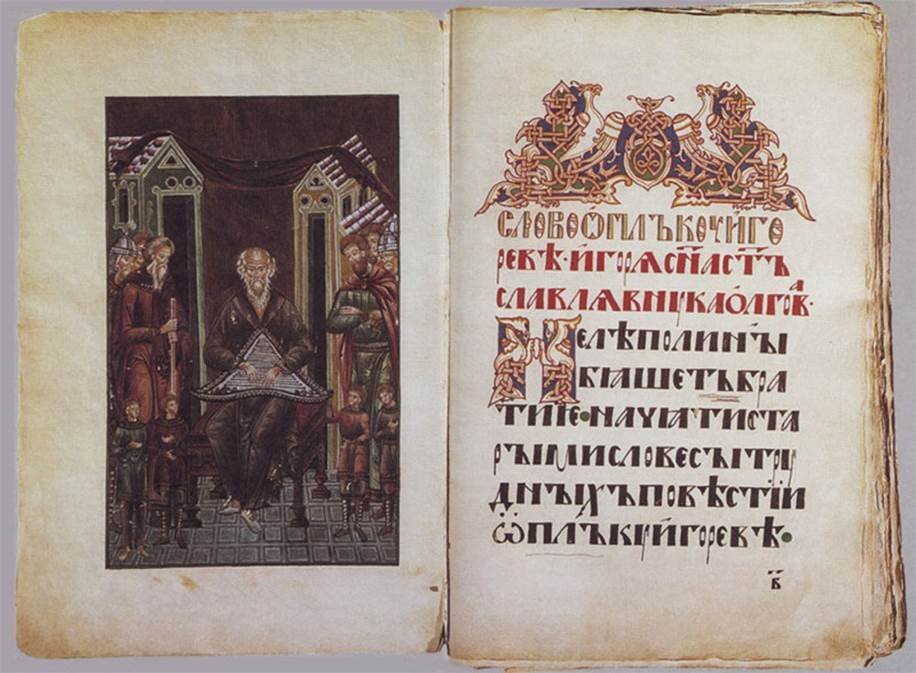 СЛОВОѾПЛЪКОУИ҆ГО
РЕВѢ·И҆ГОРѦСЙ҃НАСТ҃Ъ
СЛАВЛѦВНꙊКАОЛГОВⷶ·
НЕЛѢПОЛИНꙐ
БꙖШЕТЬБРА
ТИѤ·НАЧѦТИСТА
РꙐМИСЛОВЕСꙐТРꙊ
ДНꙐХЪПОВѢСТІИ
ѾПЛЪКꙊИ҆ГОРЕВѢ·
в҃